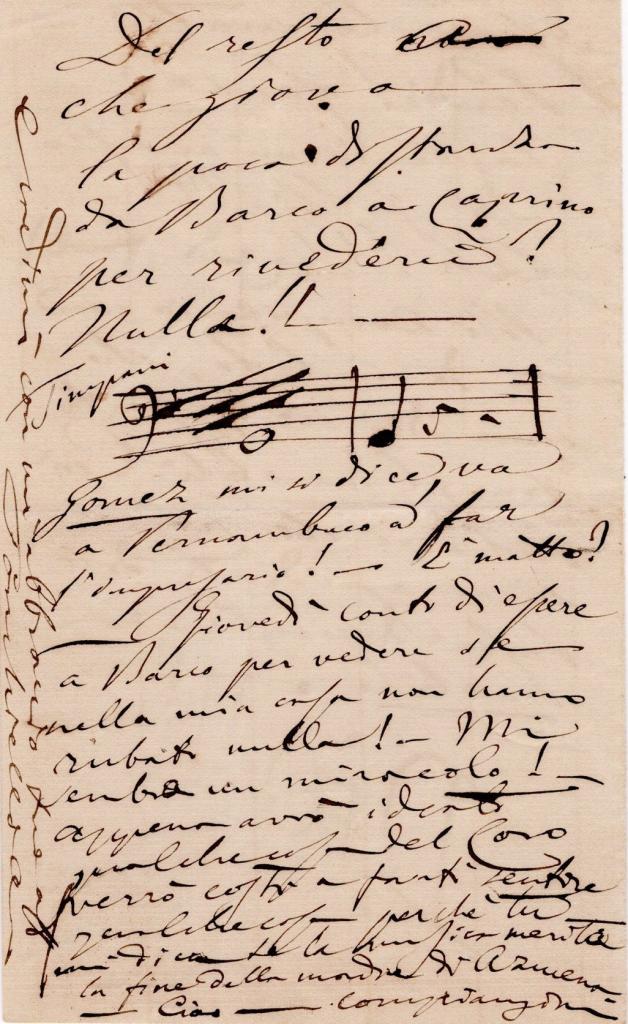 Del resto
che giova
la poca distanza
da Barco a Caprino
per rivederci?
Nulla!!
Timpani
Gomez mi si dice, va
a Pernambuco a far
l'impresario! — È matto?
Giovedì conto d'essere
a Barco per vedere se
nella mia casa non hanno
rubato nulla! — Mi
sembra un miracolo! —
appena avrò ideato
qualche cosa del Coro
verrò costì a farti sentire
qualche cosa perchè tu
mi dica se la musica merita
la fine della madre di
Ciao — compiangimi
e mi abbraccio